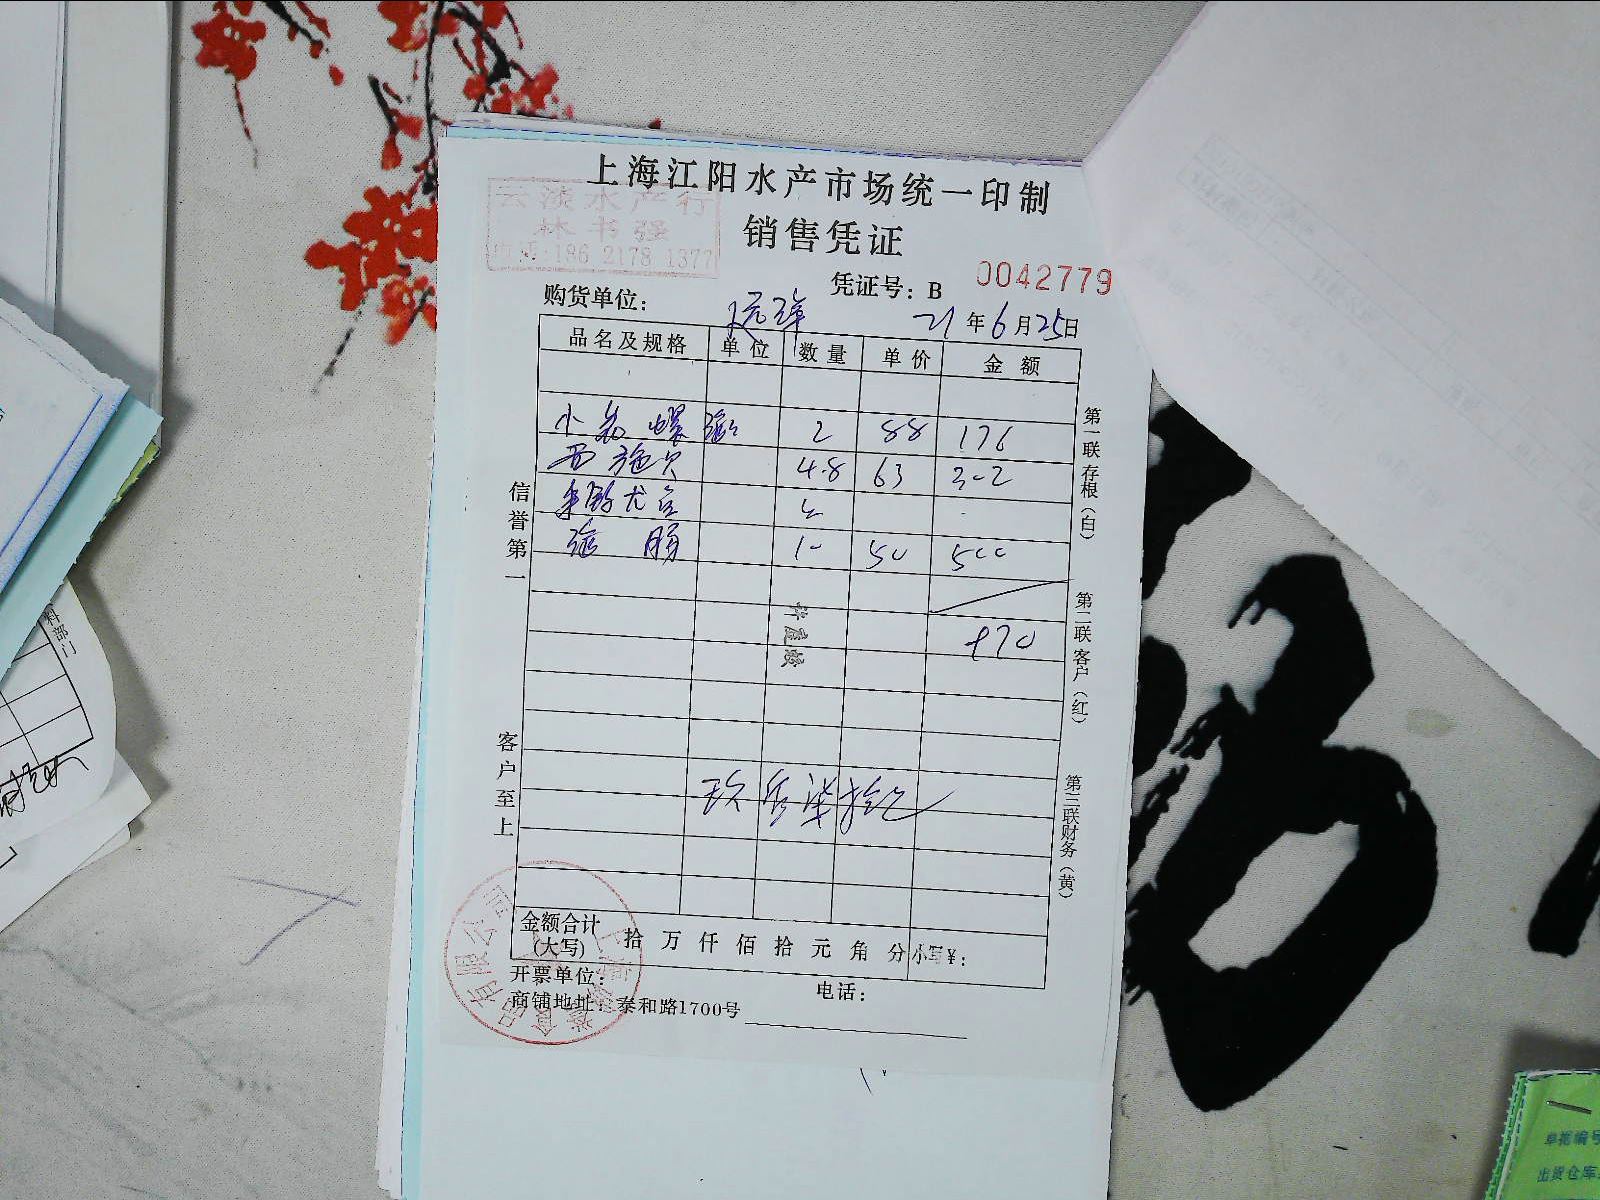 上海江阳水产市场统一印制
云淡水产行
林书强
电话:186 2178 1377
销售凭证
凭证号：B 0042779
购货单位：
21年6月25日
品名及规格 单位 数量 单价 金额
小 螺 2 88 176
西施贝 4.8 63 302
10 50 500
970
玖佰柒拾元
许彦敏
信誉第一
客户至上
第一联存根（白）
第二联客户（红）
第三联财务（黄）
金额合计(大写) 拾 万 仟 佰 拾 元 角 分 小写¥：
开票单位：
电话：
商铺地址：泰和路1700号
有限公司
料部门
单据编号
出货仓库